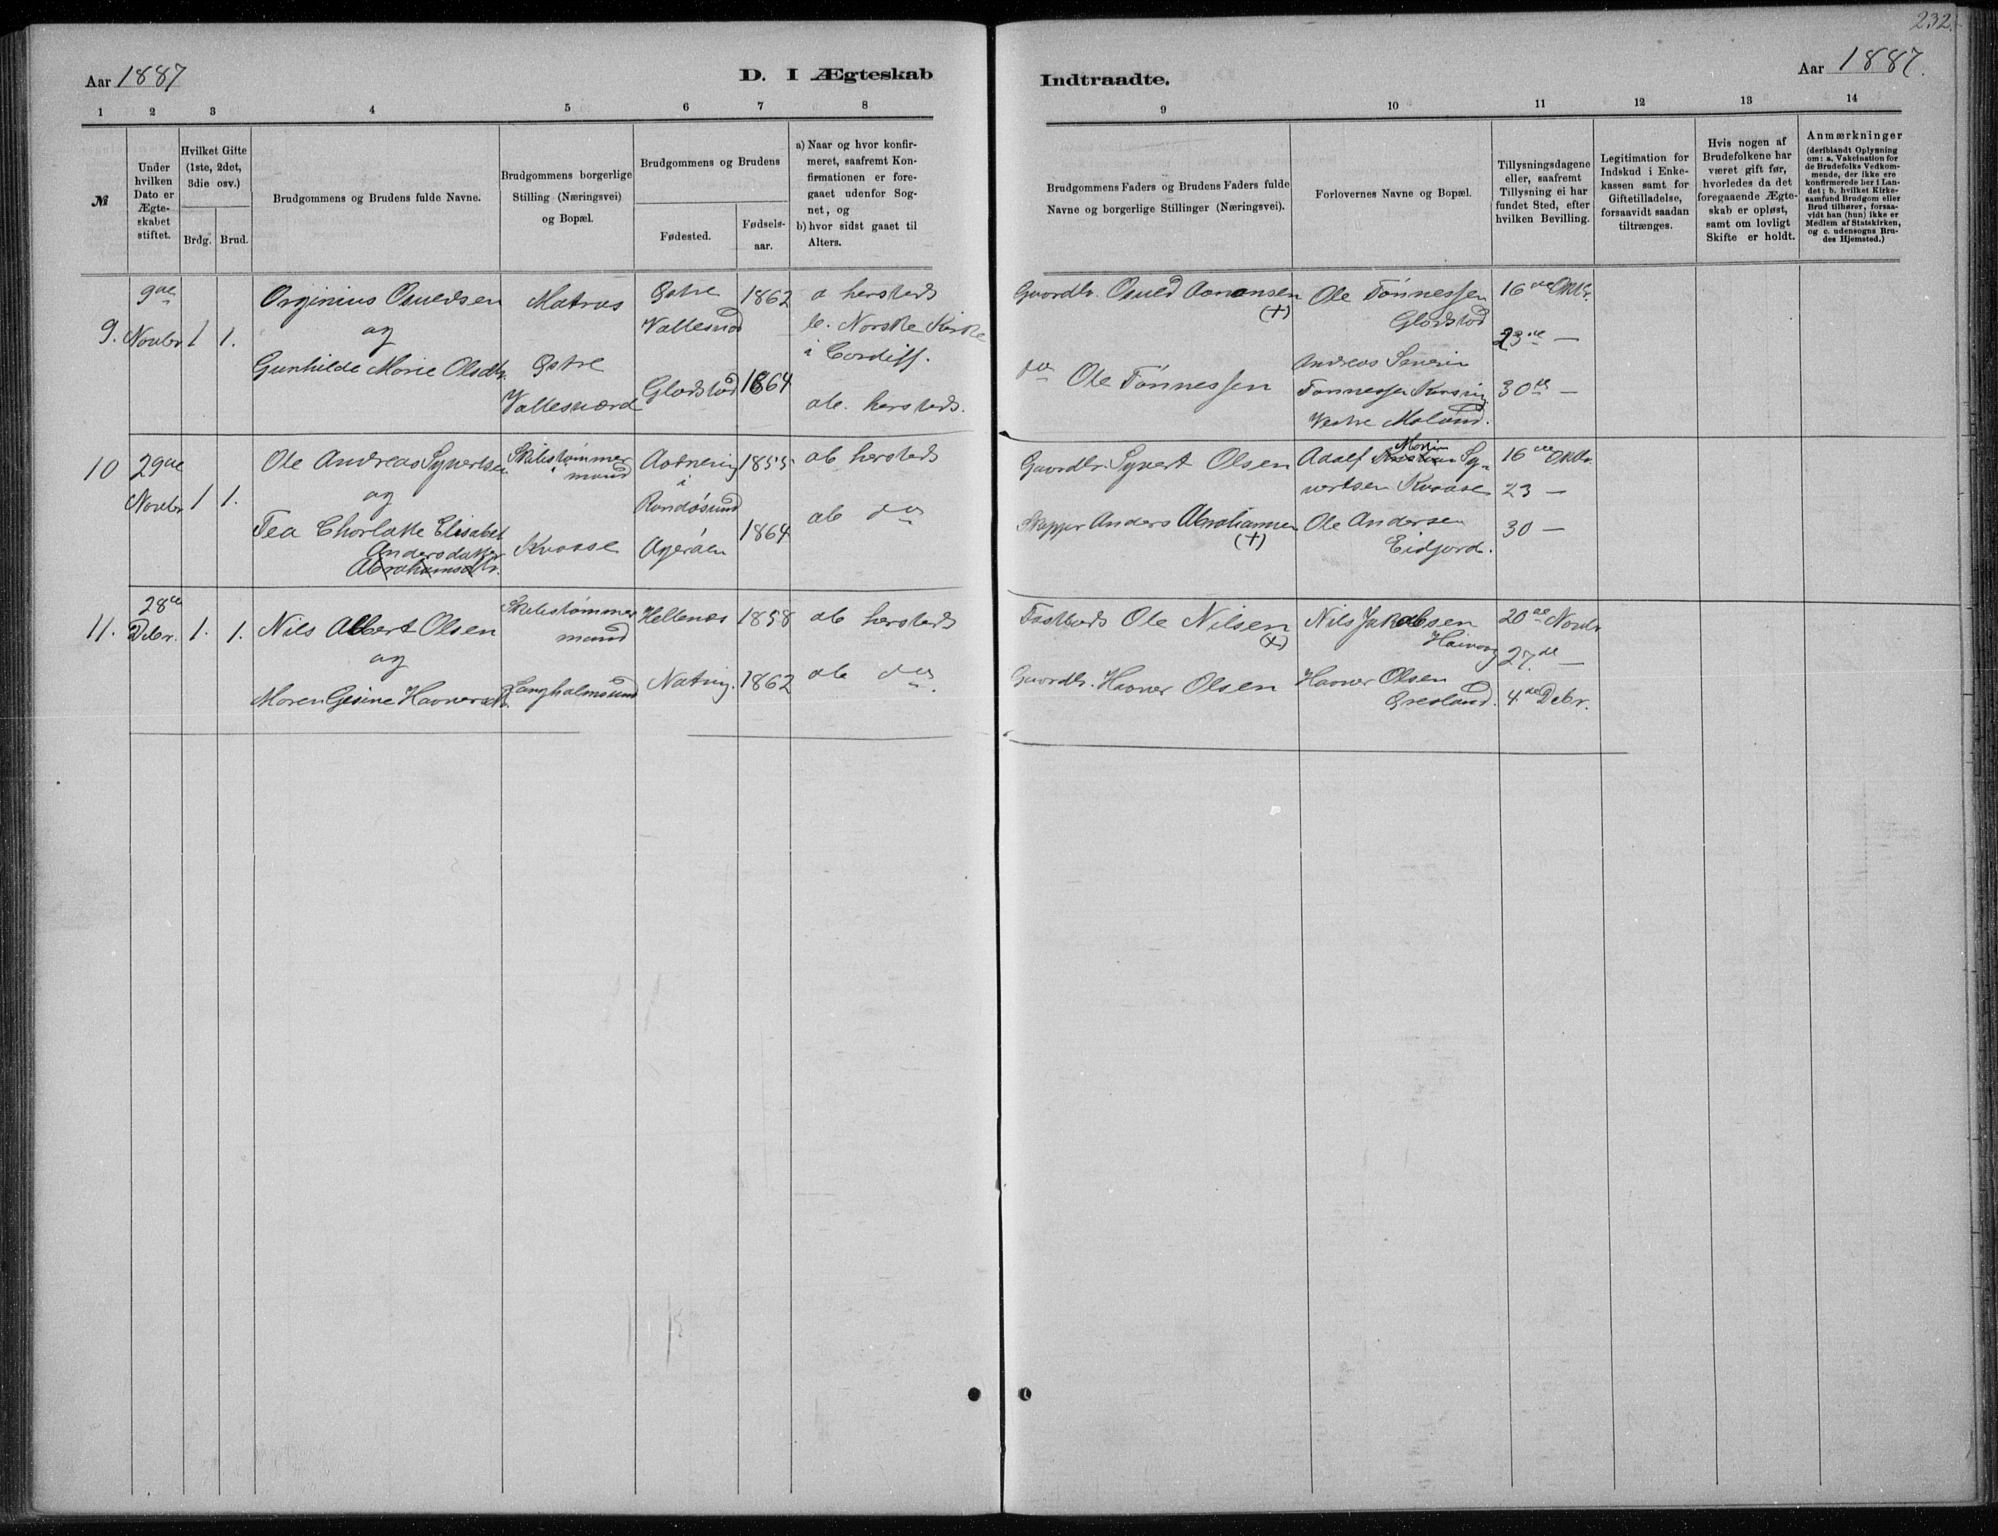 232.
Aar 1887
D. I Ægteskab
Indtraadte.
Aar 1887.
1 2 3 4 5 6 7 8 9 10 11 12 13 14
№
Under
hvilken
Dato er
Ægte-
skabet
stiftet.
Hvilket Gifte
(1ste, 2det,
3die osv.)
Brdg. Brud.
Brudgommens og Brudens fulde Navne.
Brudgommens borgerlige
Stilling (Næringsvei)
og Bopæl.
Brudgommens og Brudens
Fødested.
Fødsels-
aar.
a) Naar og hvor konfir-
meret, saafremt Kon-
firmationen er fore-
gaaet udenfor Sog-
net, og
b) hvor sidst gaaet til
Alters.
Brudgommens Faders og Brudens Faders fulde
Navne og borgerlige Stillinger (Næringsvei).
Forlovernes Navne og Bopæl.
Tillysningsdagene
eller, saafremt
Tillysning ei har
fundet Sted, efter
hvilken Bevilling.
Legitimation for
Indskud i Enke-
kassen samt for
Giftetilladelse,
forsaavidt saadan
tiltrænges.
Hvis nogen af
Brudefolkene har
været gift før,
hvorledes da det
foregaaende Ægte-
skab er opløst,
samt om lovligt
Skifte er holdt.
Anmærkninger
(deriblandt Oplysning
om: a. Vakcination for
de Brudefolks Vedkom-
mende, der ikke ere
konfirmerede her i Lan-
det; b. hvilket Kirke-
samfund Brudgom eller
Brud tilhører, forsaa-
vidt han (hun) ikke er
Medlem af Statskirken,
og c. udensogns Bru-
des Hjemsted.)
9.
9de
Novbr
1 1.
Orginius Osuldsen
og
Gunhilde Marie Olsdtr.
Matros
Østre
Vallesværd
Østre
Vallesvær
Gladstad
1862
1864
a hersteds
b. Norske Kirke
i Cardiff.
ab. hersteds.
Gaardbr. Osuld Aanonsen
(+)
do Ole Tønnessen
Ole Tønnessen
Gladstad
Andreas Severin
Tønnessen
Vestre Moland.
16de Oktbr.
23de —
30de —
10
29de
Novbr
1 1.
Ole Andreas Syvertsen
og
Tea Charlotte Elisabet
Andersdatter
Abrahamsdtr.
Skibstømmer
mand
Kvaase
i
Randøsund
Agerøen
1855
1864
ab hersteds
ab do
Gaardbr. Syvert Olsen
Skipper Anders Abrahamsen
(+)
Adolf Sy-
vertsen Kvaase
Ole Andersen
Eidjord.
16de Oktbr.
23 —
30 —
11.
28de
Debr.
1. 1.
Nils Albert Olsen
og
Maren Gesine Havnersdtr.
Skibstømmer
mand
Langholmsund
Hellenes
Natvig.
1858
1862
ab hersteds
ab do.
Ole Nilsen
(+)
Gaardbr. Havner Olsen
Nils Jakobsen
Høivaag
Havner Olsen
20de Novbr
27de —
4de Debr.